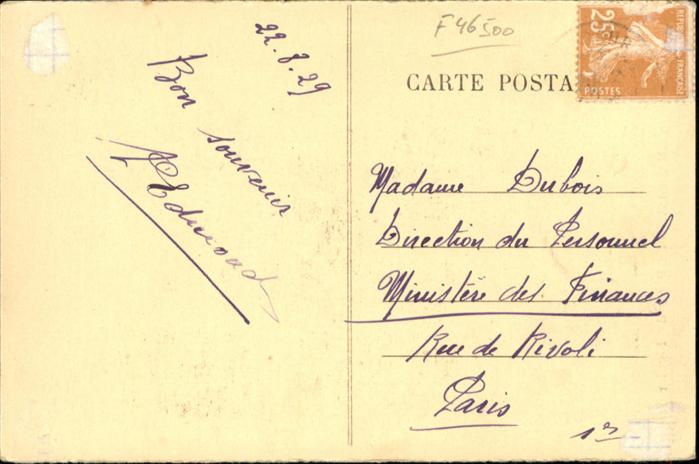 22.8.29
Bon souvenir
Edmond
F 46500
CARTE POSTA
25c
POSTES
Madame Dubois
Direction du Personnel
Ministère des Finances
Rue de Rivoli
Paris
1er